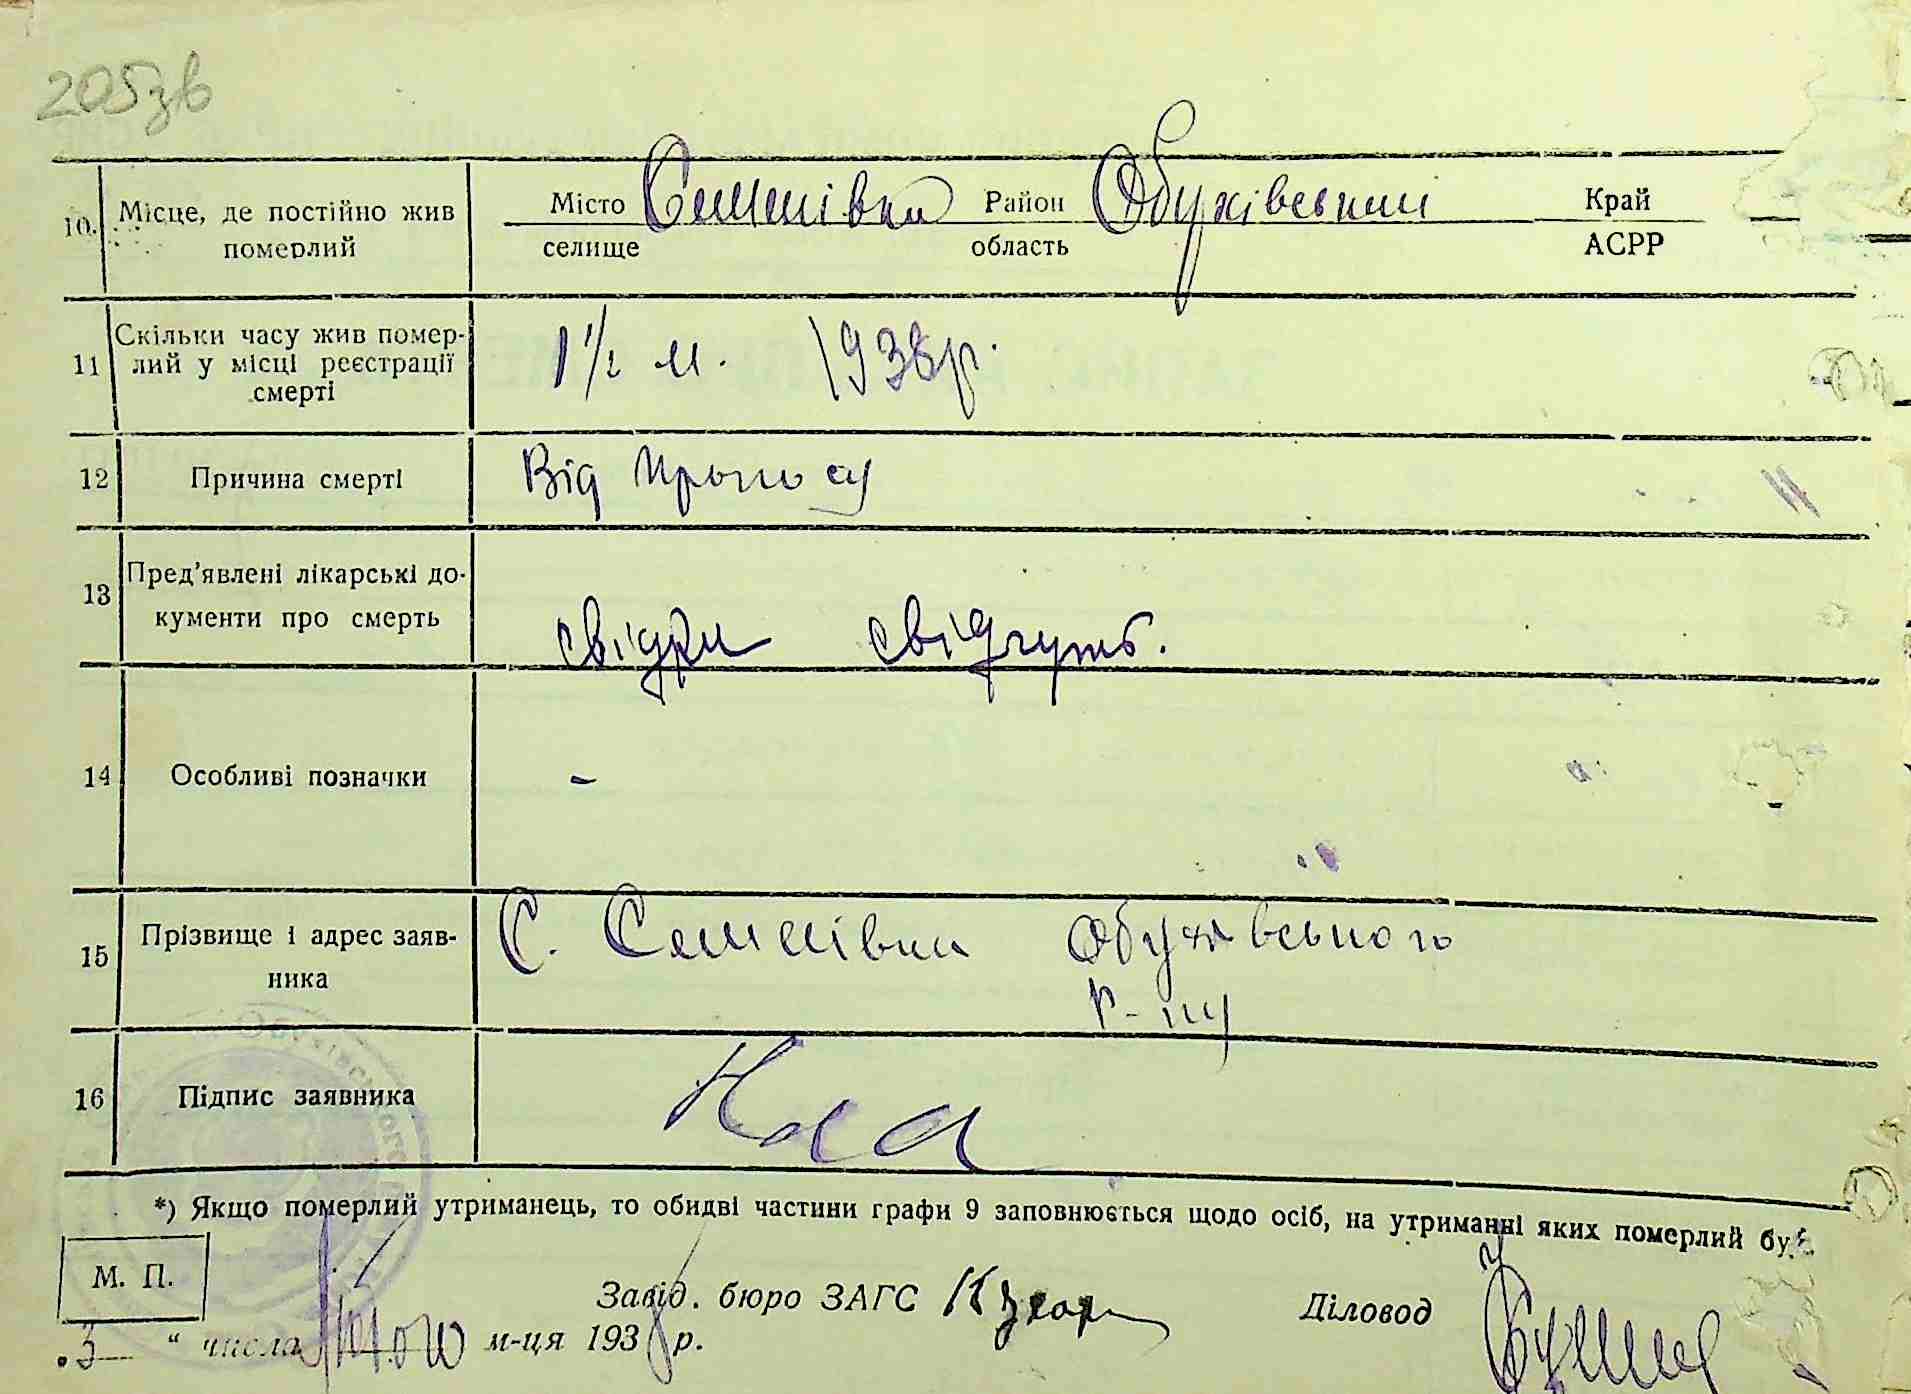 205зв
10. Місце, де постійно жив померлий
Місто Семенівка Район Обухівський Край
селище область АСРР
11 Скільки часу жив помер-
лий у місці реєстрації
смерті
1 1/2 м. 1938р.
12 Причина смерті Від
13 Пред'явлені лікарські до-
кументи про смерть
свідки свідчуть.
14 Особливі позначки -
15 Прізвище і адрес заяв-
ника
С. Семенівка Обухівського
р-ну
16 Підпис заявника
*) Якщо померлий утриманець, то обидві частини графи 9 заповнюється щодо осіб, на утриманні яких померлий був.
М. П.
Завід. бюро ЗАГС Діловод
3 " числа м-ця 1938 р.